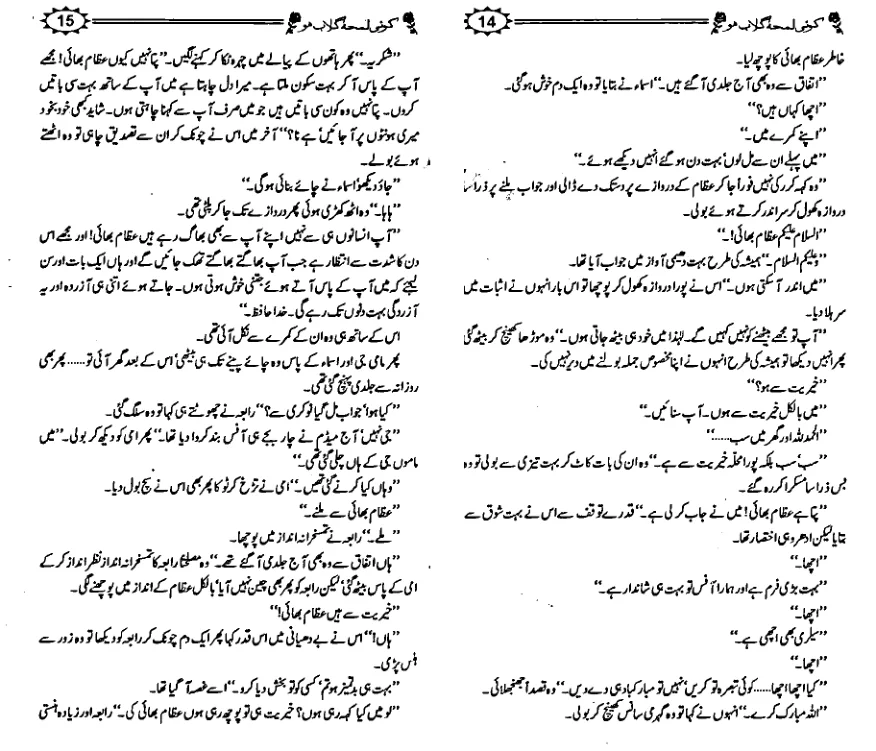 کوئی لمحہ گلاب ہو 14
خاطر عظام بھائی کا پوچھ لیا۔
’’اتفاق سے وہ بھی آج جلدی آ گئے ہیں۔‘‘ اسماء نے بتایا تو وہ ایک دم خوش ہو گئی۔
’’اچھا کہاں ہیں؟‘‘
’’اپنے کمرے میں۔‘‘
’’میں پہلے ان سے مل لوں‘ بہت دن ہو گئے انہیں دیکھے ہوئے۔‘‘
’’وہ کہہ کر رکی نہیں فوراً جا کر عظام کے دروازے پر دستک دے ڈالی اور جواب ملنے پر ذرا سا
دروازہ کھول کر سر اندر کرتے ہوئے بولی۔
’’السلام علیکم عظام بھائی!۔‘‘
’’وعلیکم السلام۔‘‘ ہمیشہ کی طرح بہت دھیمی آواز میں جواب آیا تھا۔
’’میں اندر آ سکتی ہوں۔‘‘ اس نے پورا دروازہ کھول کر پوچھا تو اس بار انہوں نے اثبات میں
سر ہلا دیا۔
’’آپ تو مجھے بیٹھنے کو نہیں کہیں گے۔ لہٰذا میں خود ہی بیٹھ جاتی ہوں۔‘‘ وہ موڑھا کھینچ کر بیٹھ گئی
پھر انہیں دیکھا تو ہمیشہ کی طرح انہوں نے اپنا مخصوص جملہ بولنے میں دیر نہیں کی۔
’’خیریت سے ہو؟‘‘
’’میں بالکل خیریت سے ہوں۔ آپ سنائیں۔‘‘
’’الحمدللہ اور گھر میں سب......‘‘
’’سب‘ سب بلکہ پورا محلّہ خیریت سے ہے۔‘‘ وہ ان کی بات کاٹ کر بہت تیزی سے بولی تو وہ
بس ذرا سا مسکرا کر رہ گئے۔
’’پتا ہے عظام بھائی! میں نے جاب کر لی ہے۔‘‘ قدرے توقف سے اس نے بہت شوق سے
بتایا لیکن ادھر وہی اختصار تھا۔
’’اچھا۔‘‘
’’بہت بڑی فرم ہے اور ہمارا آفس تو بہت ہی شاندار ہے۔‘‘
’’اچھا۔‘‘
’’سیلری بھی اچھی ہے۔‘‘
’’اچھا۔‘‘
’’کیا اچھا اچھا......کوئی تبصرہ تو کریں‘ نہیں تو مبارکباد ہی دے دیں۔‘‘ وہ قصداً جھنجھلائی۔
’’اللہ مبارک کرے۔‘‘ انہوں نے کہا تو وہ گہری سانس کھینچ کر بولی۔
کوئی لمحہ گلاب ہو 15
’’شکریہ۔‘‘ پھر ہاتھوں کے پیالے میں چہرہ ٹکا کر کہنے لگیں۔‘‘ پتا نہیں کیوں عظام بھائی! مجھے
آپ کے پاس آ کر بہت سکون ملتا ہے۔ میرا دل چاہتا ہے میں آپ کے ساتھ بہت سی باتیں
کروں۔ پتا نہیں وہ کون سی باتیں ہیں جو میں صرف آپ سے کہنا چاہتی ہوں۔ شاید کبھی خود بخود
میری ہونٹوں پر آ جائیں‘ ہے نا؟‘‘ آخر میں اس نے چونک کر ان سے تصدیق چاہی تو وہ اٹھتے
ہوئے بولے۔
’’جاؤ دیکھو‘ اسماء نے چائے بنائی ہو گی۔‘‘
’’ہاہا۔‘‘ وہ اٹھ کھڑی ہوئی پھر دروازے تک جا کر پلٹی تھی۔
’’آپ انسانوں ہی سے نہیں اپنے آپ سے بھی بھاگ رہے ہیں عظام بھائی! اور مجھے اس
دن کا شدت سے انتظار ہے جب آپ بھاگتے بھاگتے تھک جائیں گے اور ہاں ایک بات اور سن
لیجئے کہ میں آپ کے پاس آتے ہوئے جتنی خوش ہوتی ہوں۔ جاتے ہوئے اتنی ہی آزردہ اور یہ
آزردگی بہت دنوں تک رہے گی۔ خدا حافظ۔‘‘
اس کے ساتھ ہی وہ ان کے کمرے سے نکل آئی تھی۔
پھر مامی جی اور اسماء کے پاس وہ چائے پینے تک ہی بیٹھی‘ اس کے بعد گھر آئی تو......پھر بھی
روزانہ سے جلدی پہنچ گئی تھی۔
’’کیا ہوا‘ جواب مل گیا نوکری سے؟‘‘ رابعہ نے چھوٹتے ہی کہا تو وہ سلگ گئی۔
’’جی نہیں‘ آج میڈم نے چار بجے ہی آفس بند کروا دیا تھا۔‘‘ پھر امی کو دیکھ کر بولی۔‘‘ میں
ماموں جی کے ہاں چلی گئی تھی۔‘‘
’’وہاں کیا کرنے گئی تھیں۔‘‘ امی نے تڑخ کر ٹوکا پھر بھی اس نے سچ بول دیا۔
’’عظام بھائی سے ملنے۔‘‘
’’ملے۔‘‘ رابعہ نے تمسخرانہ انداز میں پوچھا۔
’’ہاں اتفاق سے وہ بھی آج جلدی آ گئے تھے۔‘‘ وہ مصلحتاً رابعہ کا تمسخرانہ انداز نظر انداز کر کے
امی کے پاس بیٹھ گئی‘ لیکن رابعہ کو پھر بھی چین نہیں آیا‘ بالکل عظام کے انداز میں پوچھنے لگی۔
’’خیریت سے ہیں عظام بھائی!‘‘
’’ہاں!‘‘ اس نے بے دھیانی میں اس قدر کہا پھر ایک دم چونک کر رابعہ کو دیکھا تو وہ زور سے
ہنس پڑی۔
’’بہت ہی بدتمیز ہو تم‘ کسی کو تو بخش دیا کرو۔‘‘ اسے غصہ آ گیا تھا۔
’’لو میں کیا کہہ رہی ہوں؟ خیریت ہی تو پوچھ رہی ہوں عظام بھائی کی۔‘‘ رابعہ اور زیادہ ہنستی